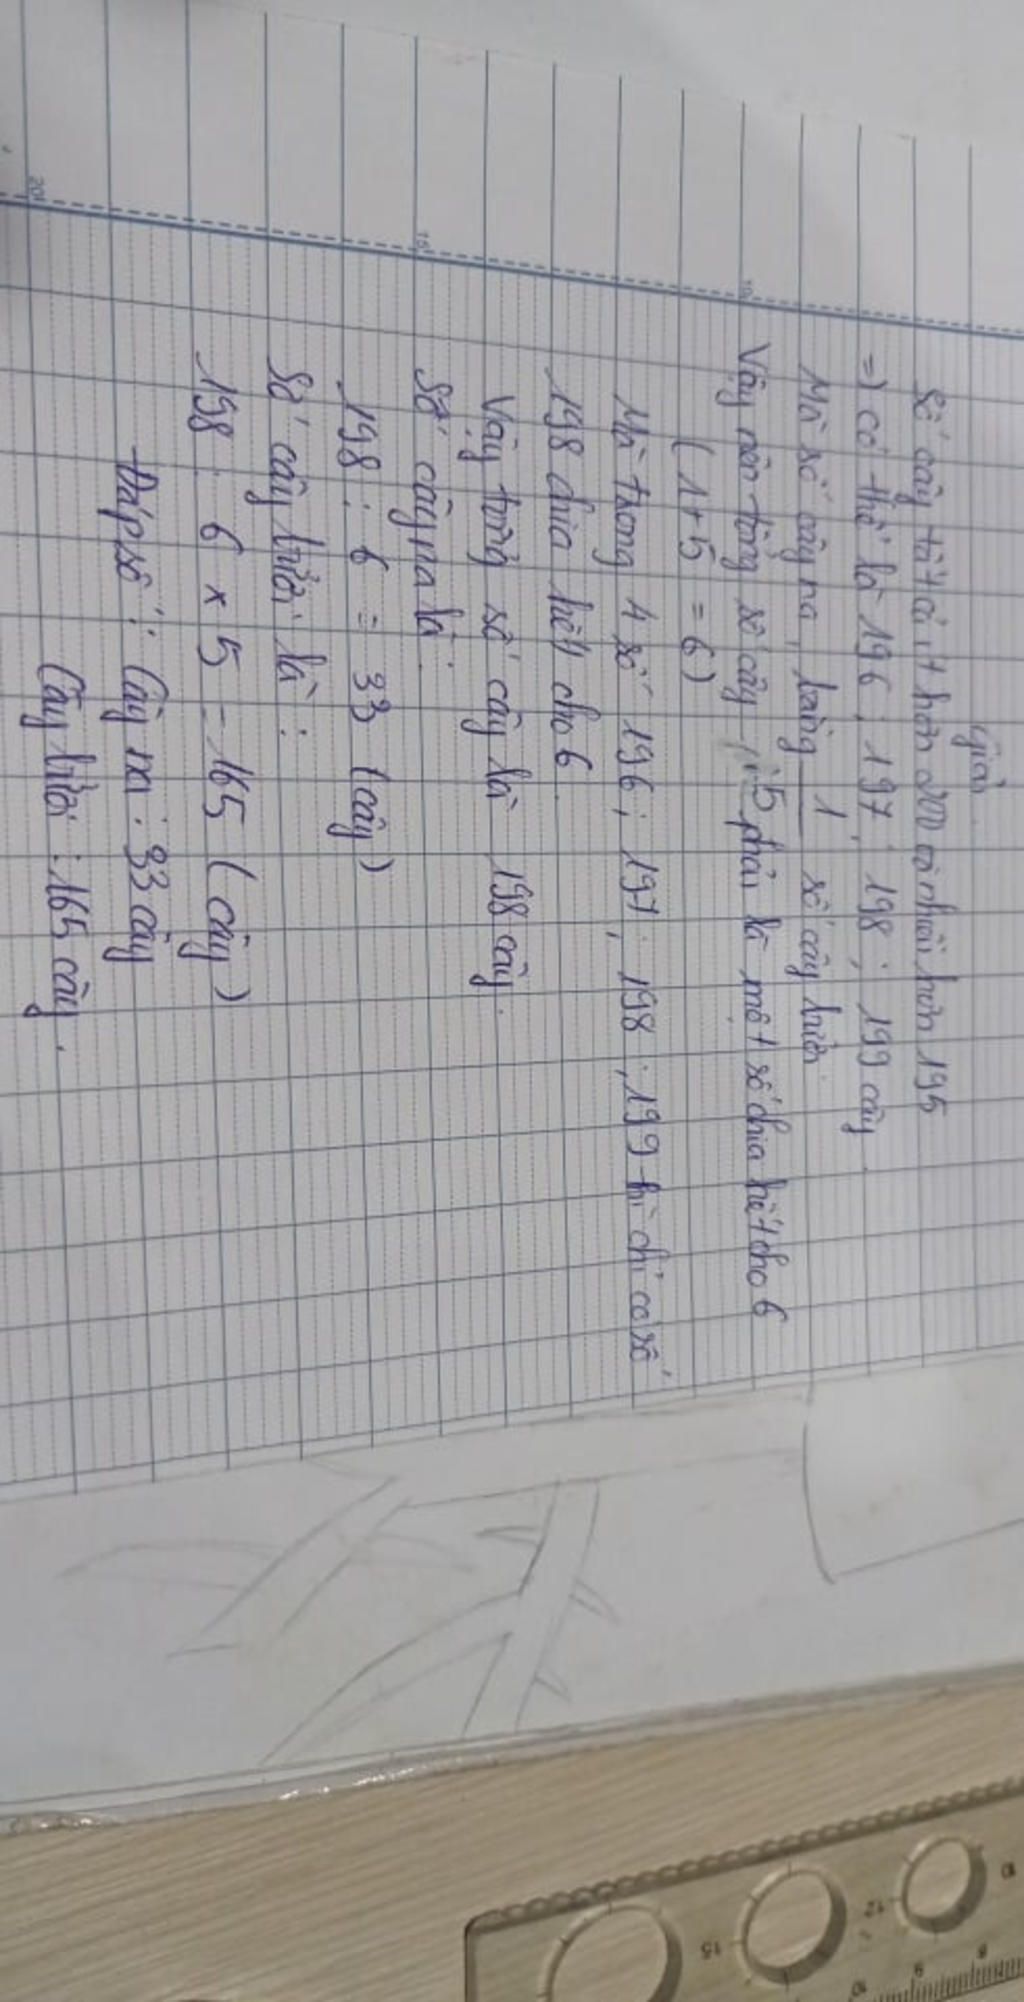 Giải
Số cây tất cả ít hơn 200 và nhiều hơn 195
=) có thể là 196 ; 197 ; 198 ; 199 cây
Mà số cây na, bằng 1/5 số cây bưởi.
Vậy nên tổng số cây phải là một số chia hết cho 6
(1+5 = 6)
Mà trong 4 số 196 ; 197 ; 198 ; 199 thì chỉ có số
198 chia hết cho 6.
Vậy tổng số cây là 198 cây.
Số cây na là :
198 : 6 = 33 (cây)
Số cây bưởi là :
198 : 6 x 5 = 165 (cây)
Đáp số : Cây na : 33 cây
Cây bưởi : 165 cây.
10
15
20
10
12
15
8
9
10